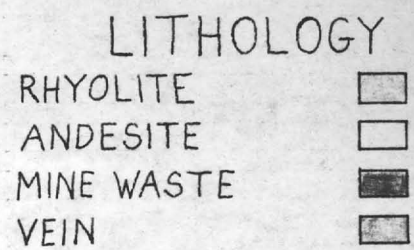 LITHOLOGY
RHYOLITE
ANDESITE
MINE WASTE
VEIN